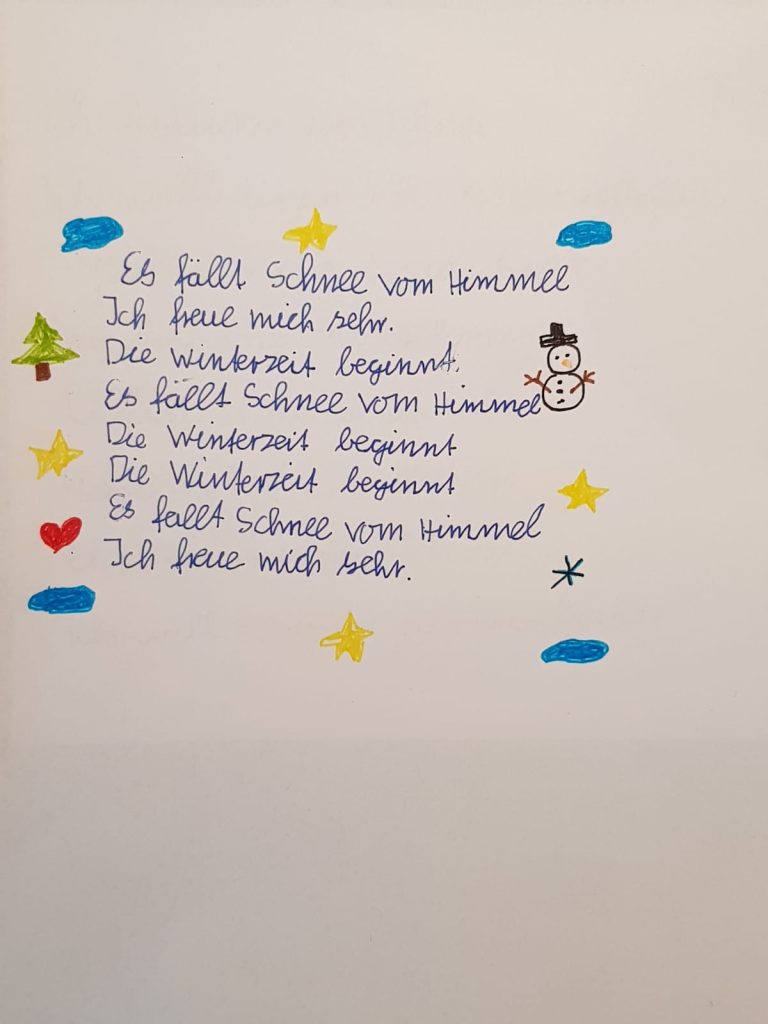 Es fällt Schnee vom Himmel
Ich freue mich sehr.
Die Winterzeit beginnt.
Es fällt Schnee vom Himmel
Die Winterzeit beginnt
Die Winterzeit beginnt
Es fällt Schnee vom Himmel
Ich freue mich sehr.